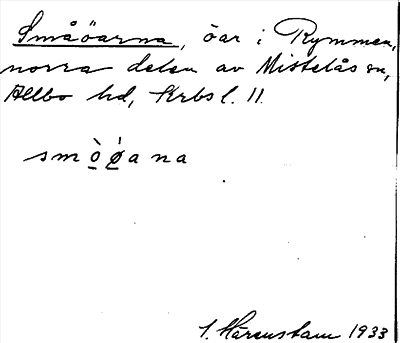 Småöarna, öar i Rymmen,
norra delen av Mistelås sn,
Allbo hd, Krbs l. 11.
smò̠ǿ̠ana
I. Härenstam 1933